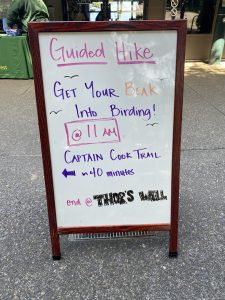 Guided Hike
Get Your Beak
Into Birding!
@ 11 AM
Captain Cook Trail
← ~40 minutes
end @ THOR'S WELL